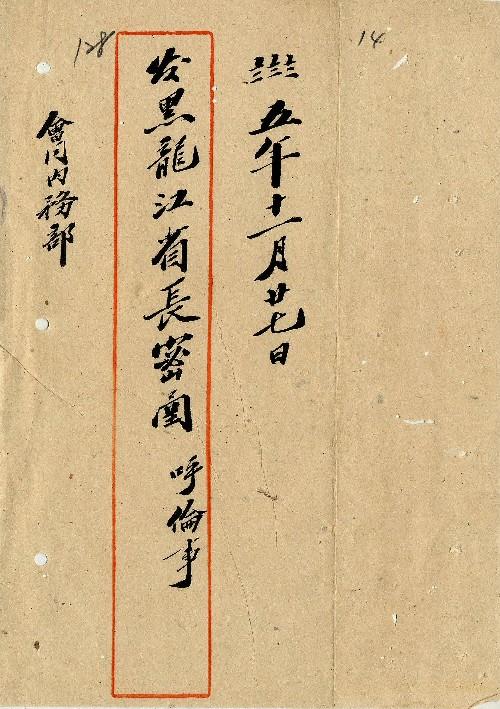 14
五年十一月廿七日
发黑龍江省長密函 呼倫事
128
會同内務部